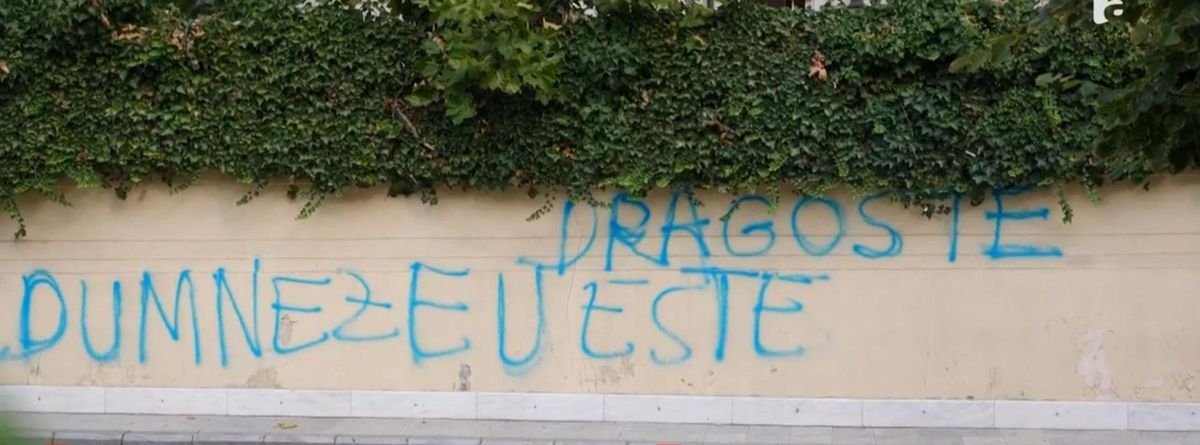 DRAGOSTE
DUMNEZEU ESTE
a